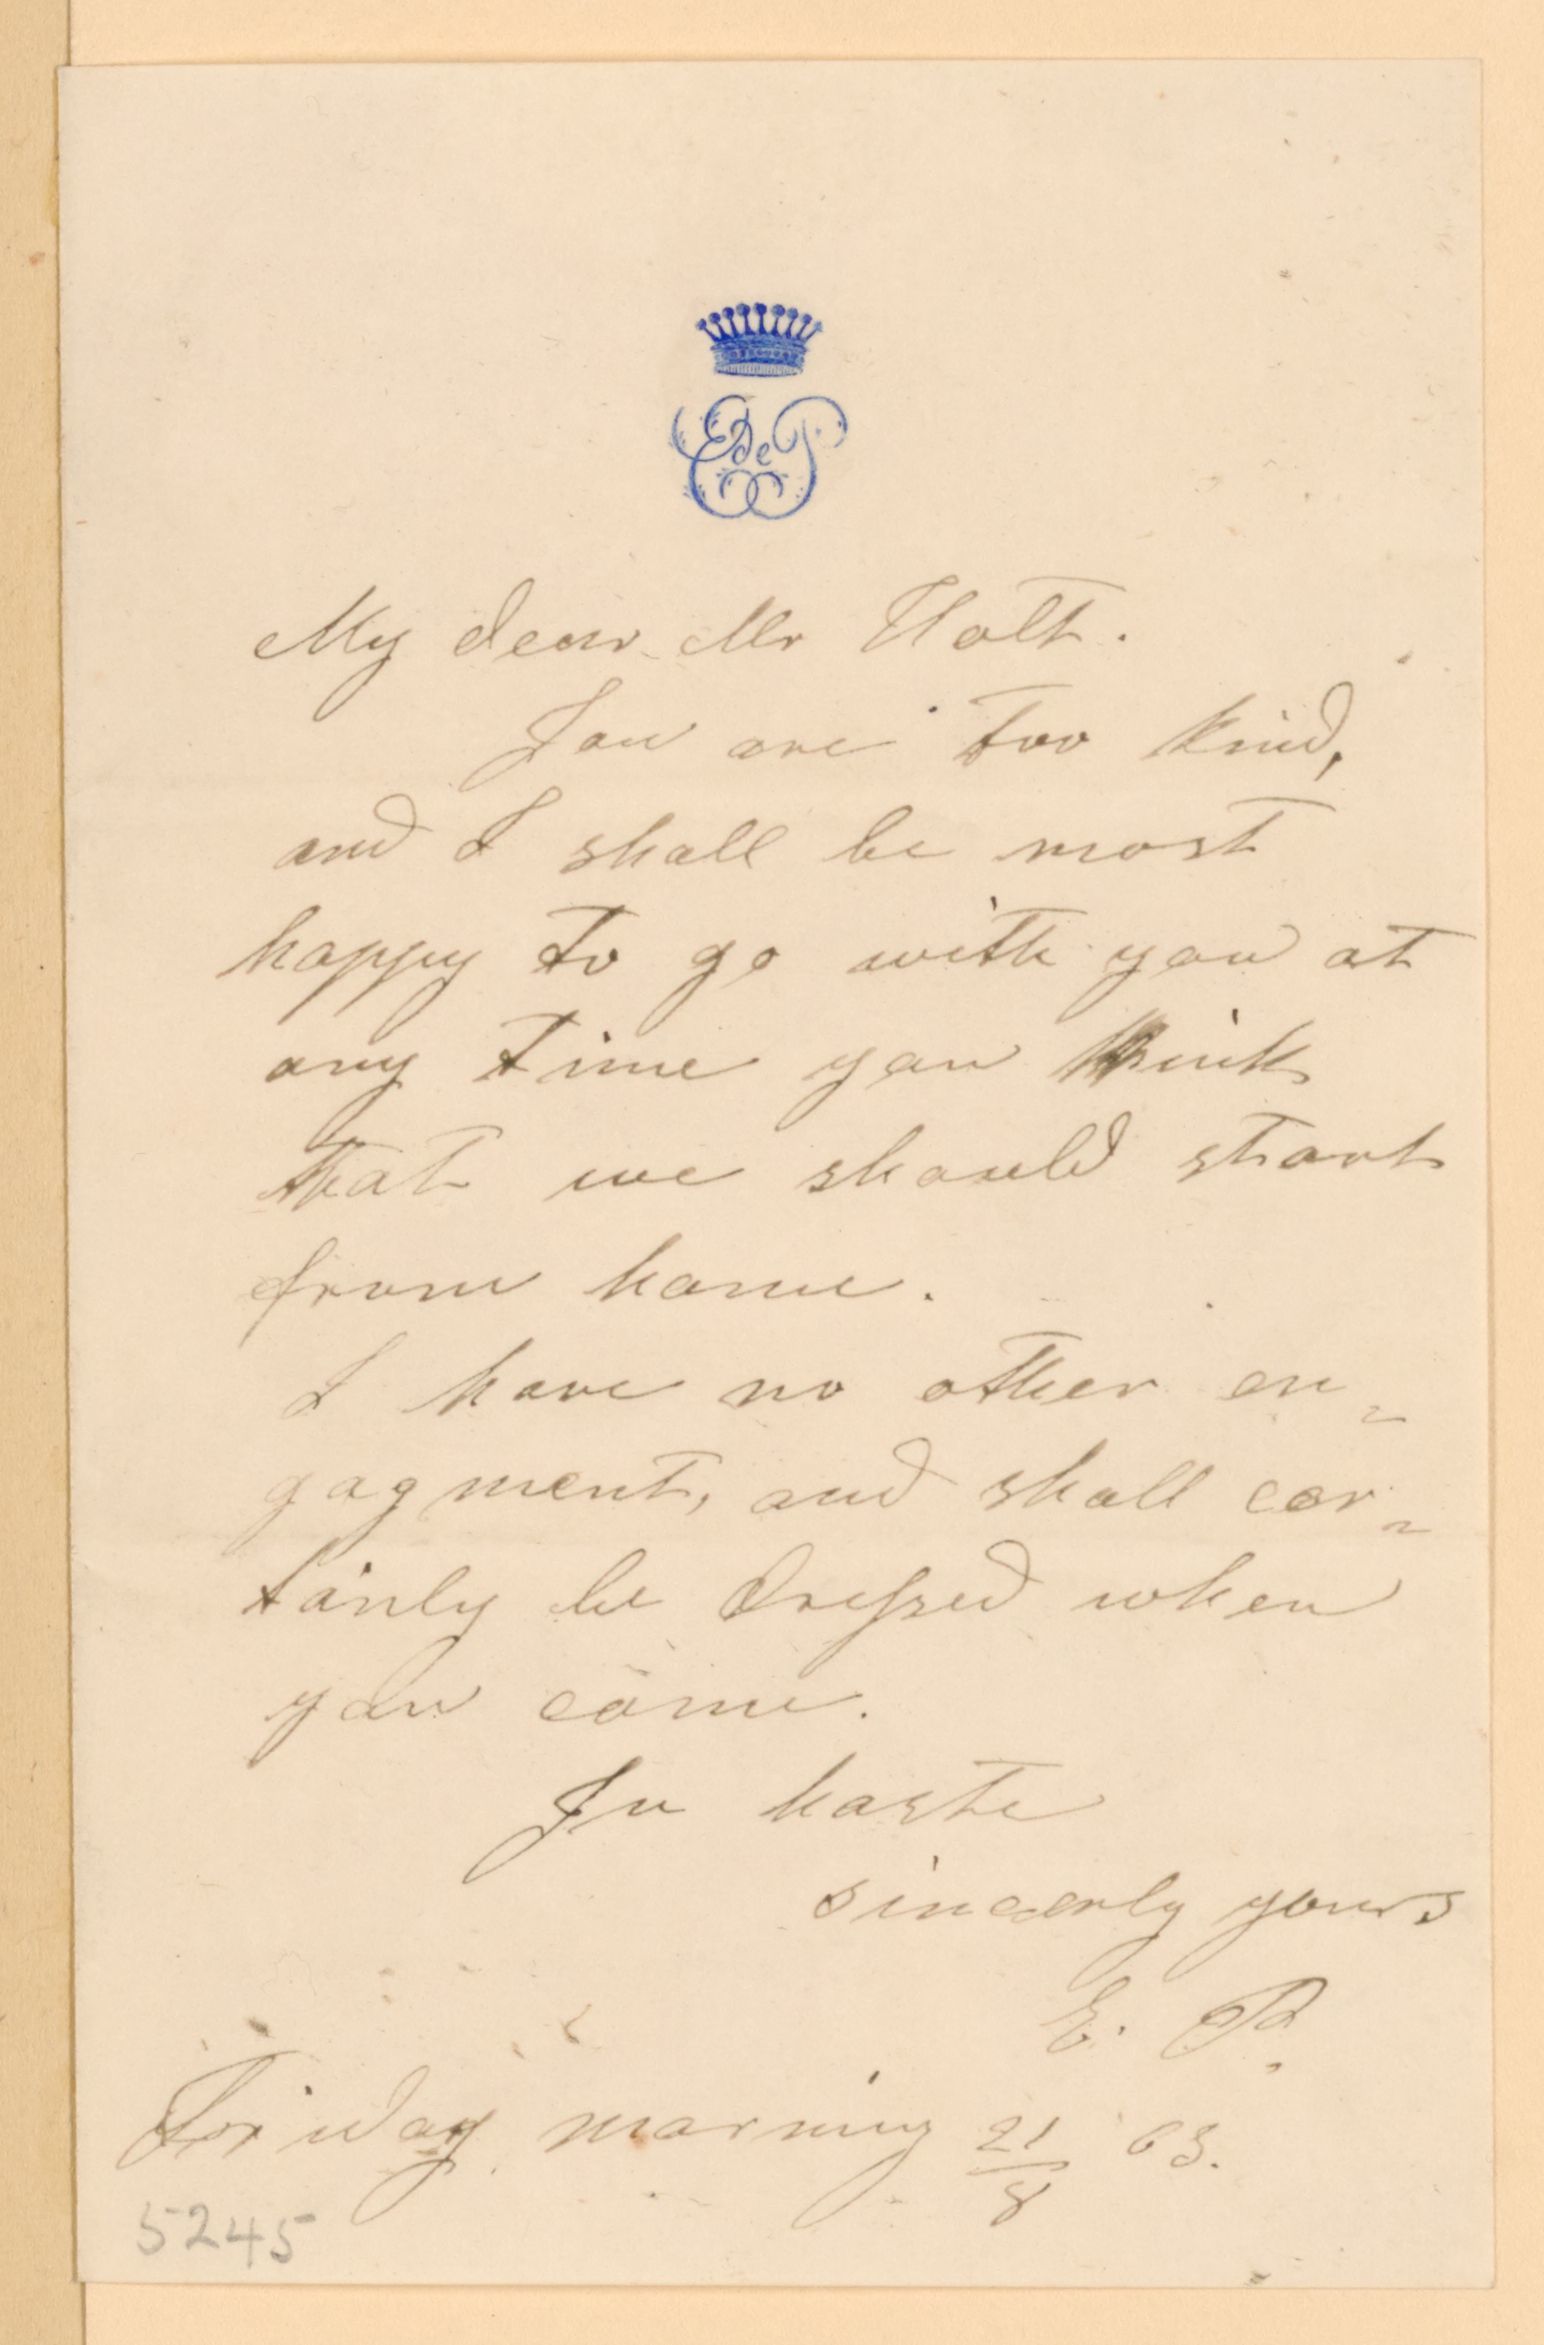 E de P
My dear Mr Holt.
You are too kind,
and I shall be most
happy to go with you at
any time you think
that we should start
from home.
I have no other en-
gagment, and shall cer-
tainly be dressed when
you come.
In haste
sincerly yours
E. P.
Friday morning 21/8 63.
5245